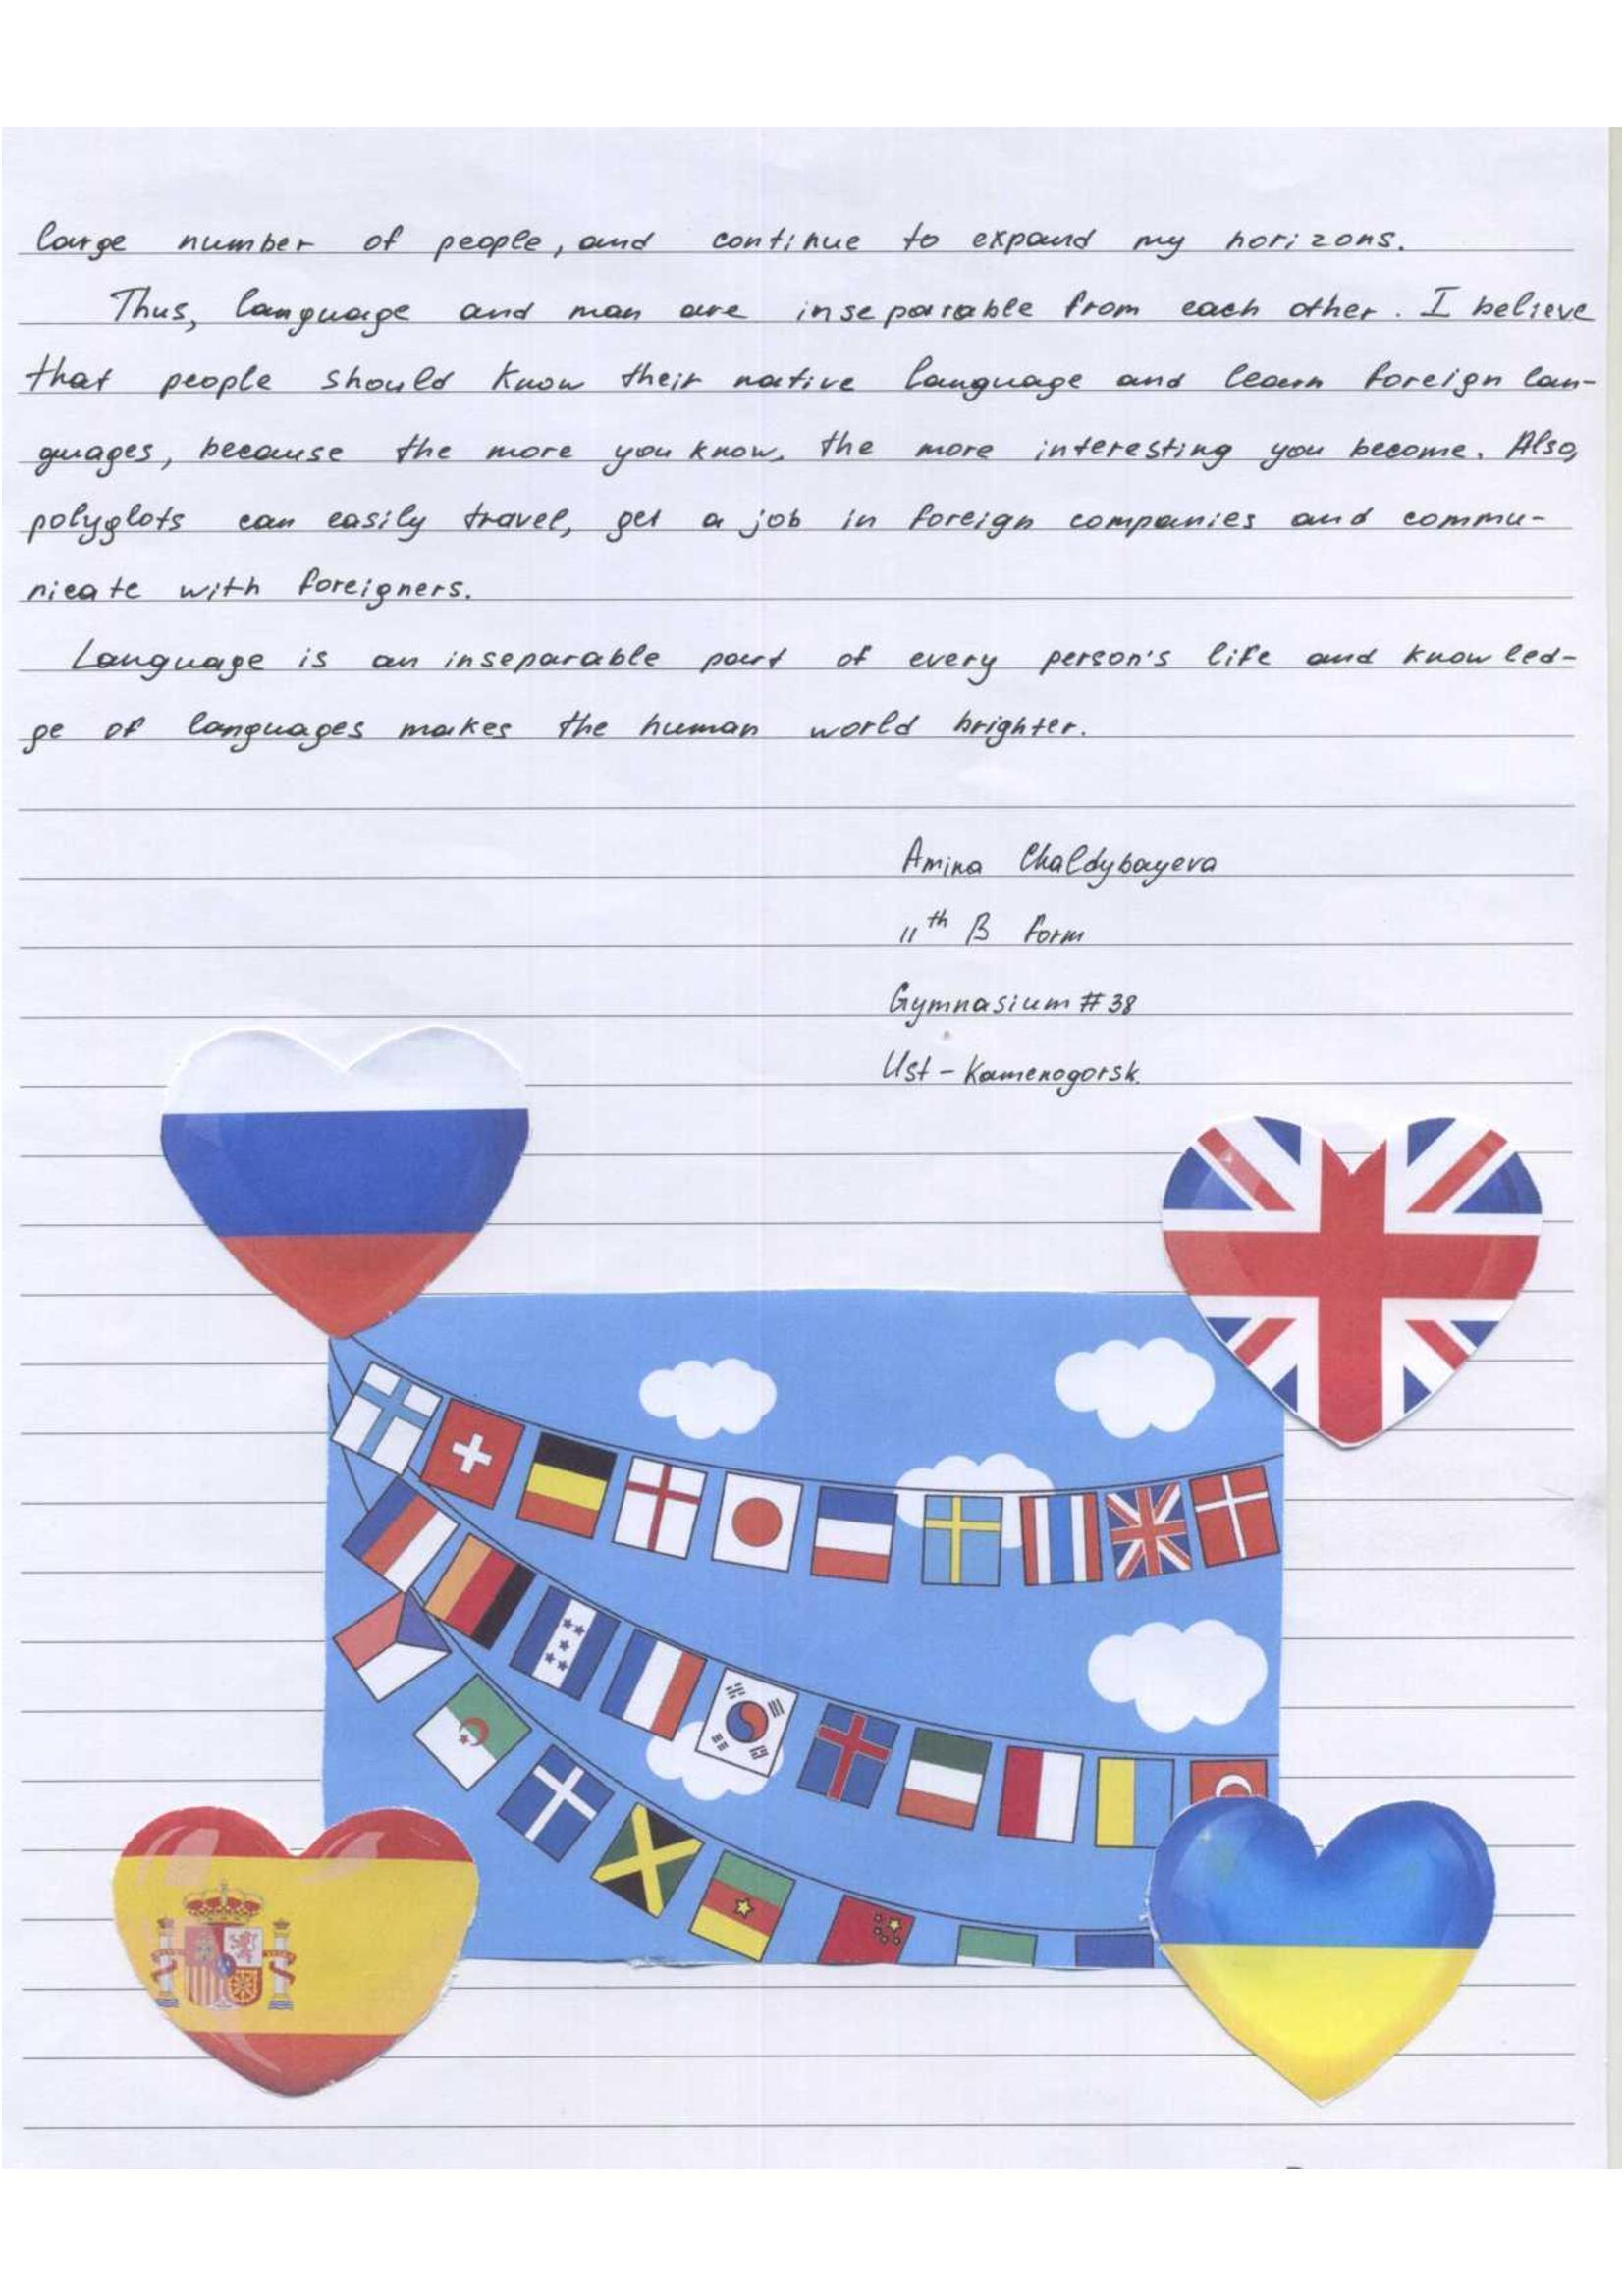 large number of people, and continue to expand my horizons.
Thus, language and man are inseparable from each other. I believe
that people should know their native language and learn foreign lan-
guages, because the more you know, the more interesting you become. Also,
polyglots can easily travel, get a job in foreign companies and commu-
nicate with foreigners.
Language is an inseparable part of every person's life and knowled-
ge of languages makes the human world brighter.
Amina Chaldybayeva
11th B form
Gymnasium #38
Ust-Kamenogorsk.